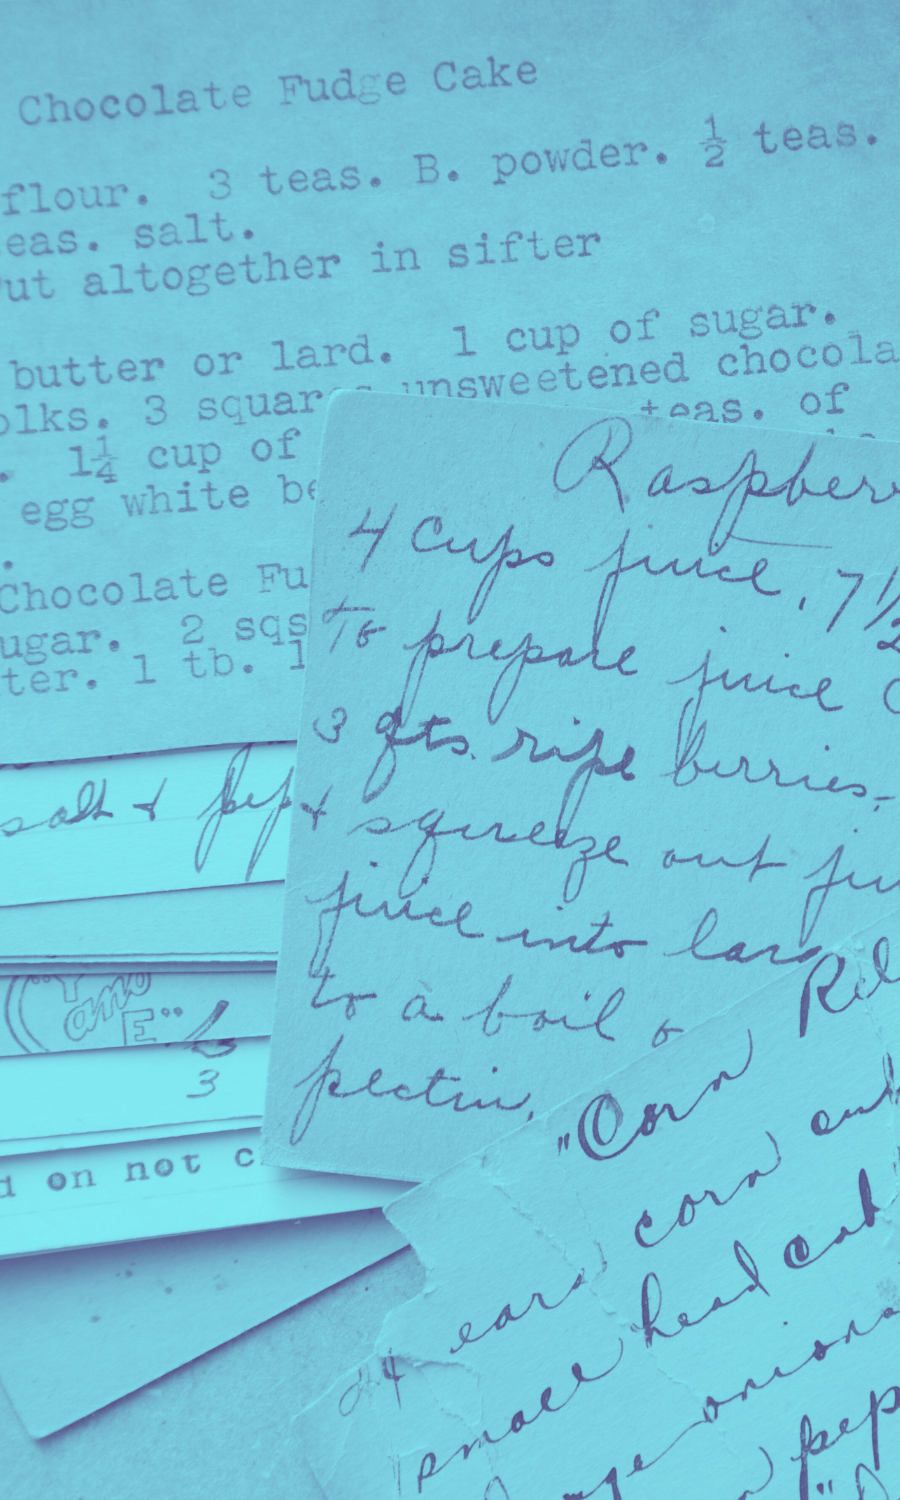 Chocolate Fudge Cake
flour. 3 teas. B. powder. ½ teas.
eas. salt.
ut altogether in sifter
butter or lard. 1 cup of sugar.
olks. 3 squares unsweetened chocola
teas. of
. 1¼ cup of
egg white be
.
Chocolate Fu
ugar. 2 sqs
ter. 1 tb. 1
Raspberr
4 cups juice, 7½
To prepare juice
3 qts. ripe berries,
+ squeeze out jui
juice into larg
to a boil
pectin.
salt + pep
"Y
and
E"
3
d on not c
"Corn Rel
24 ears corn cut
small head cab
onions
pep